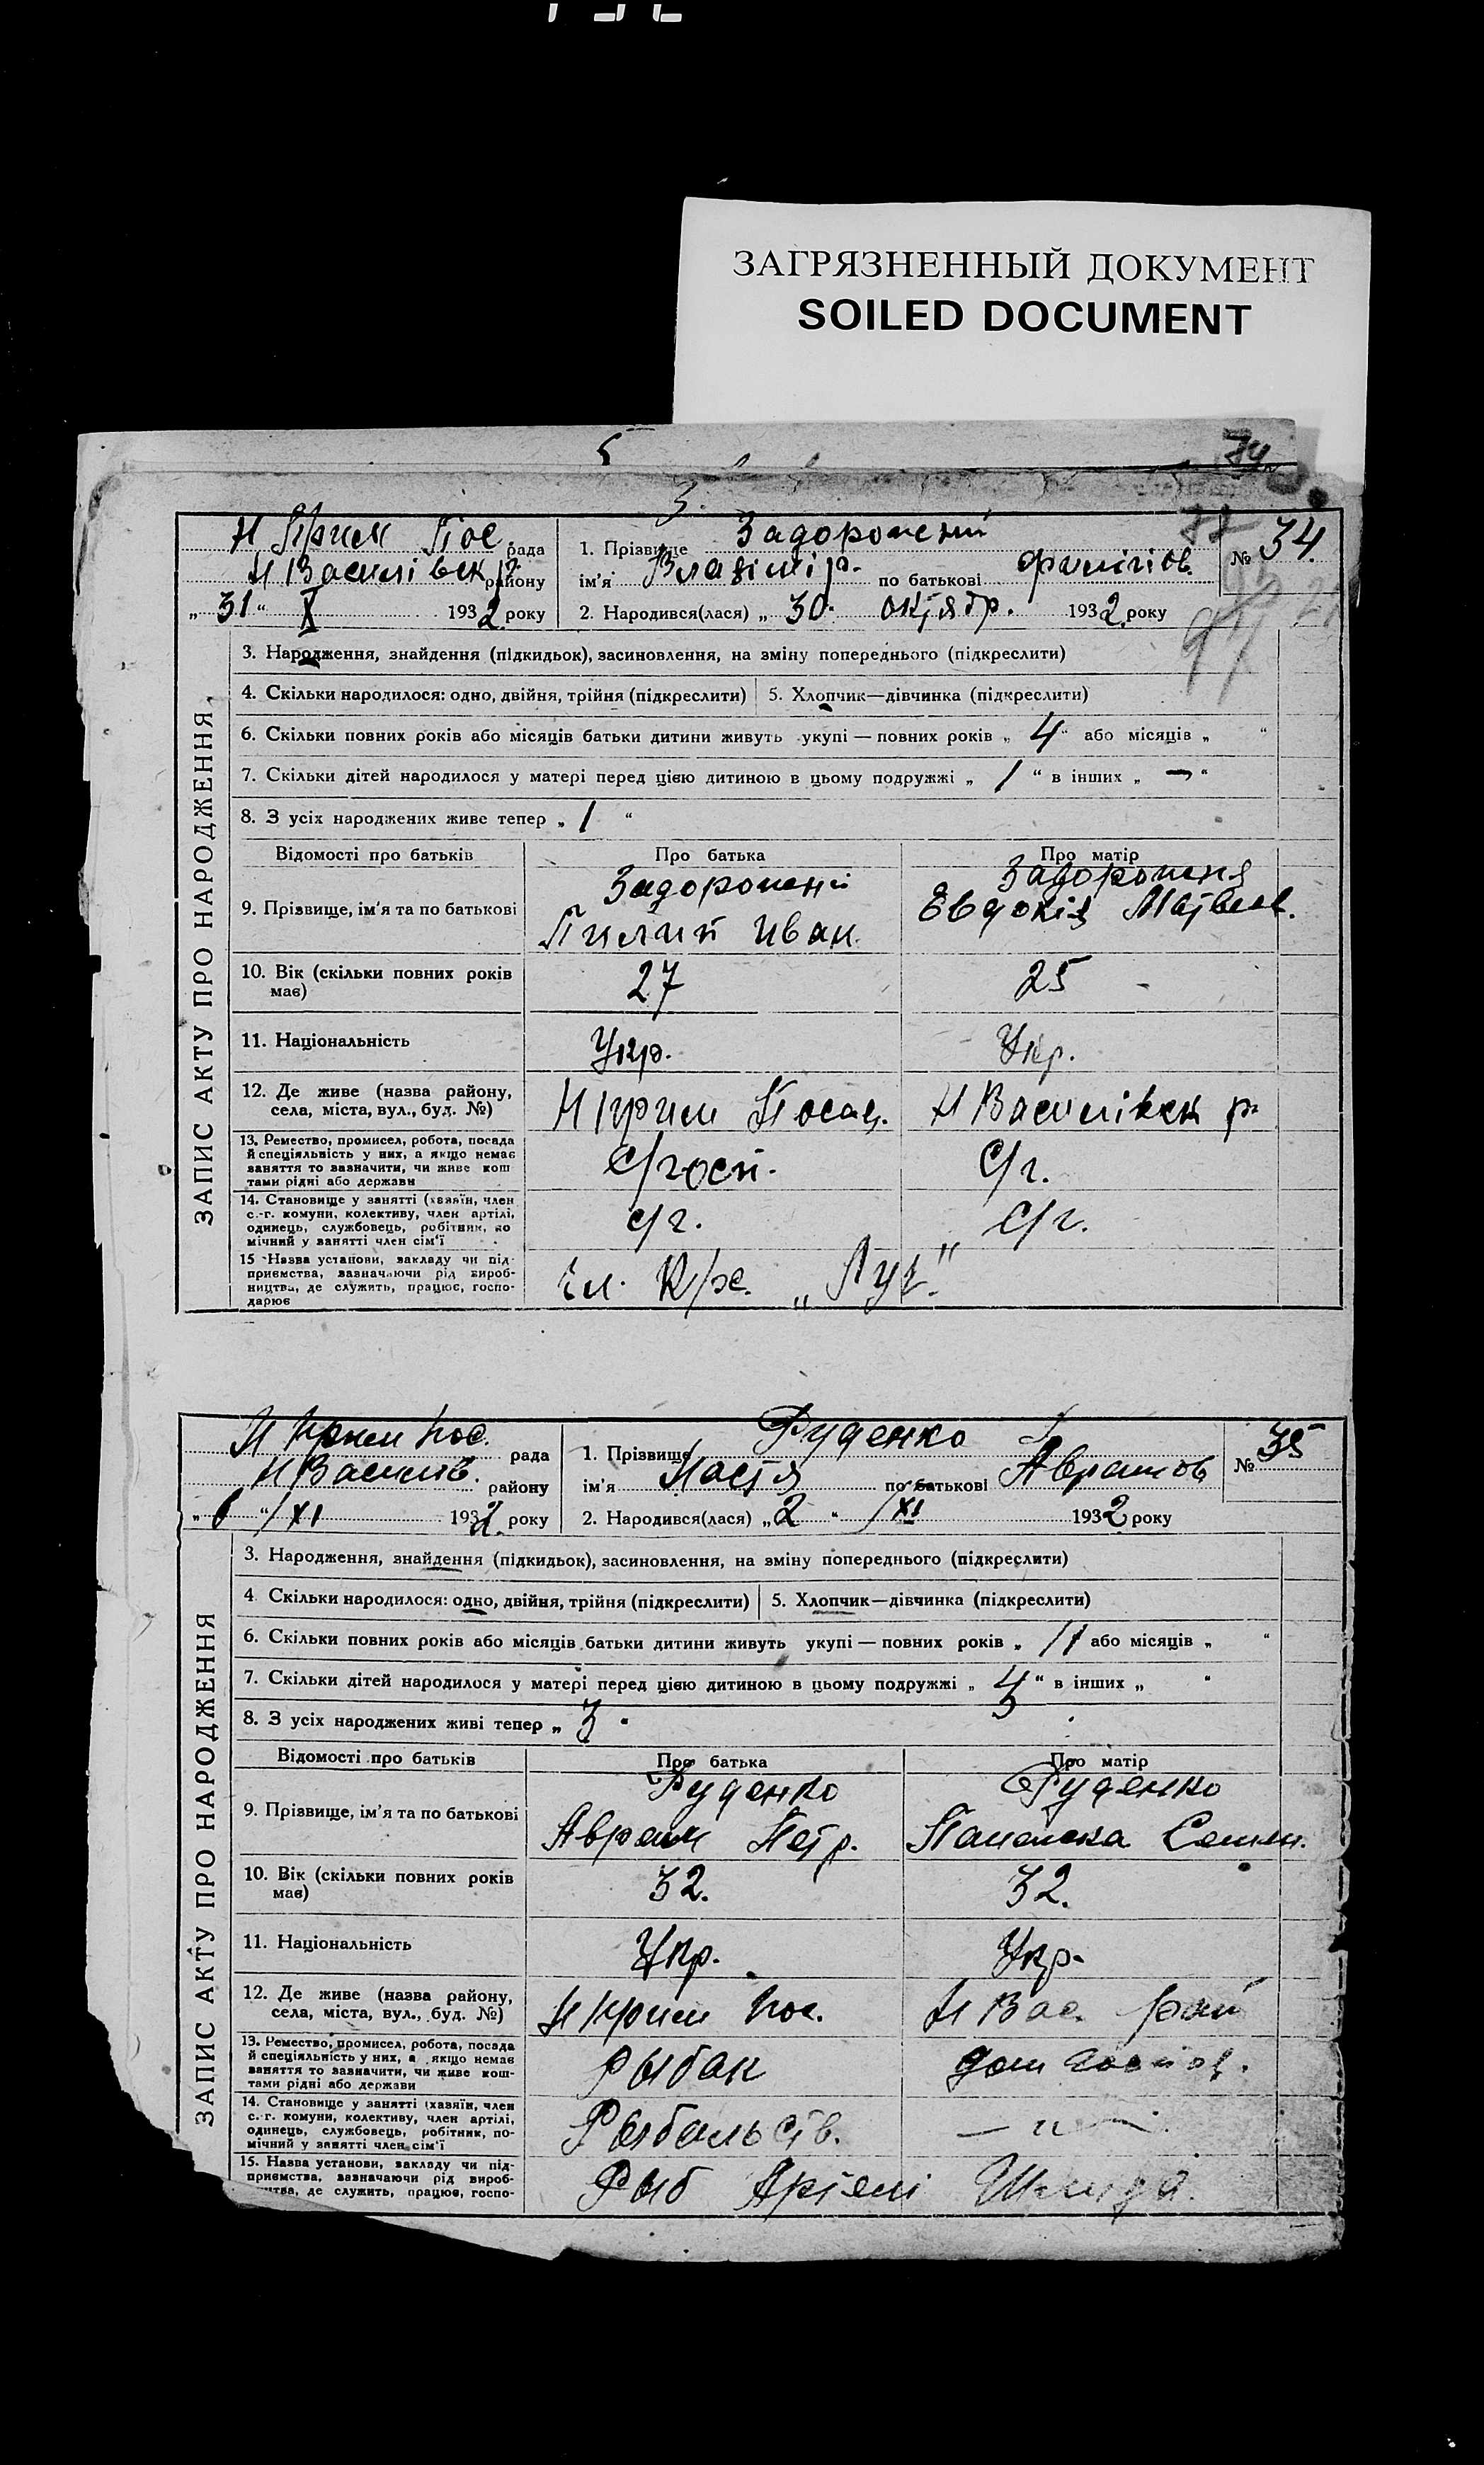 ЗАГРЯЗНЕННЫЙ ДОКУМЕНТ
SOILED DOCUMENT
5
3.
Н Крим Пос. рада
Н Василівськ р. району
„ 31 “ X 1932 року
1. Прізвище Задорожній
ім'я Владімір. по батькові Філіпов.
2. Народився(лася) „ 30. октябр. 1932 року
№ 34.
ЗАПИС АКТУ ПРО НАРОДЖЕННЯ
3. Народження, знайдення (підкидьок), засиновлення, на зміну попереднього (підкреслити)
4. Скільки народилося: одно, двійня, трійня (підкреслити)
5. Хлопчик—дівчинка (підкреслити)
6. Скільки повних років або місяців батьки дитини живуть укупі — повних років „ 4 “ або місяців „ “
7. Скільки дітей народилося у матері перед цією дитиною в цьому подружжі „ 1 “ в інших „ — “
8. З усіх народжених живе тепер „ 1 “
Відомості про батьків Про батька Про матір
9. Прізвище, ім'я та по батькові
Задорожній
Пилип Иван.
Задорожня
Евдокія Матвеев.
10. Вік (скільки повних років має) 27 25
11. Національність Укр. Укр.
12. Де живе (назва району, села, міста, вул., буд. №)
Н Крим Посад. Н Василівськ р-
13. Ремество, промисел, робота, посада
й спеціяльність у них, а якщо немає
заняття то зазначити, чи живе кош
тами рідні або держави
С/госп. С/г.
14. Становище у занятті (хазяїн, член
с.-г. комуни, колективу, член артілі,
одинець, службовець, робітник, по
мічний у занятті член сім'ї
с/г. С/г.
15 Назва установи, закладу чи під-
приємства, зазначаючи рід вироб-
ництва, де служить, працює, госпо-
дарює
Чл. К/г. „Луч.“
Н Крим Пос. рада
Н Василів. району
„ 6 “ / XI 1932 року
1. Прізвище Руденко
ім'я Настя по батькові Абрамов
2. Народився(лася) „ 2 “ / XI 1932 року
№ 35
ЗАПИС АКТУ ПРО НАРОДЖЕННЯ
3. Народження, знайдення (підкидьок), засиновлення, на зміну попереднього (підкреслити)
4 Скільки народилося: одно, двійня, трійня (підкреслити)
5. Хлопчик—дівчинка (підкреслити)
6. Скільки повних років або місяців батьки дитини живуть укупі — повних років „ 11 або місяців „ “
7. Скільки дітей народилося у матері перед цією дитиною в цьому подружжі „ “ в інших „ “
8. З усіх народжених живі тепер „ 3 “
Відомості про батьків Про батька Про матір
9. Прізвище, ім'я та по батькові
Руденко
Аврам Петр.
Руденко
Палажка Семен.
10. Вік (скільки повних років має) 32. 32.
11. Національність Укр. Укр.
12. Де живе (назва району, села, міста, вул., буд. №)
Н Крим Пос. Н Вас. рай
13. Ремество, промисел, робота, посада
й спеціяльність у них, а якщо немає
заняття то зазначити, чи живе кош-
тами рідні або держави
Рыбак дом господ.
14. Становище у занятті (хазяїн, член
с.-г. комуни, колективу, член артілі,
одинець, службовець, робітник, по-
мічний у занятті член сім'ї
Рыбальств. — „ —
15. Назва установи, закладу чи під-
приємства, зазначаючи рід вироб-
цтва, де служить, працює, госпо-
Рыб Артелі Шмидта.